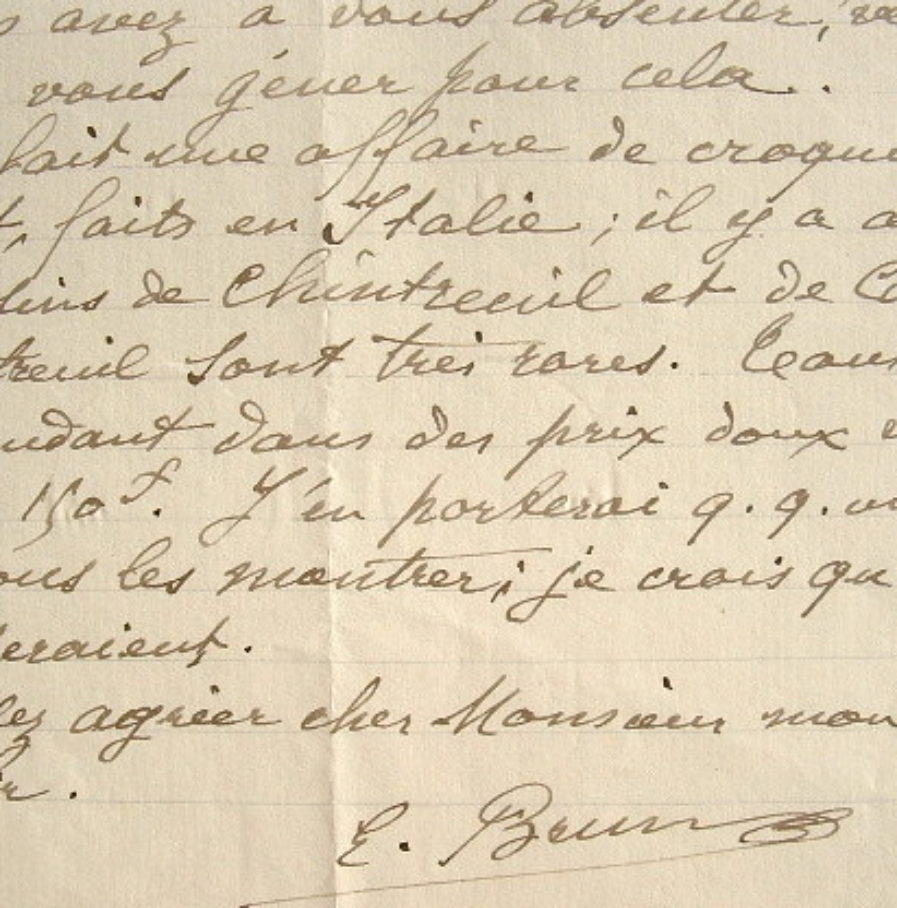 avez à vous absenter,
vous gêner pour cela..
fait une affaire de croqui
t, faits en Italie ; il y a a
sins de Chintreuil et de Co
treuil sont très rares. Tous
endant dans des prix doux e
150f. J'en porterai q. q. un
ous les montrer; je crois qu
eraient.
lez agréer cher Monsieur mon
E. Brun